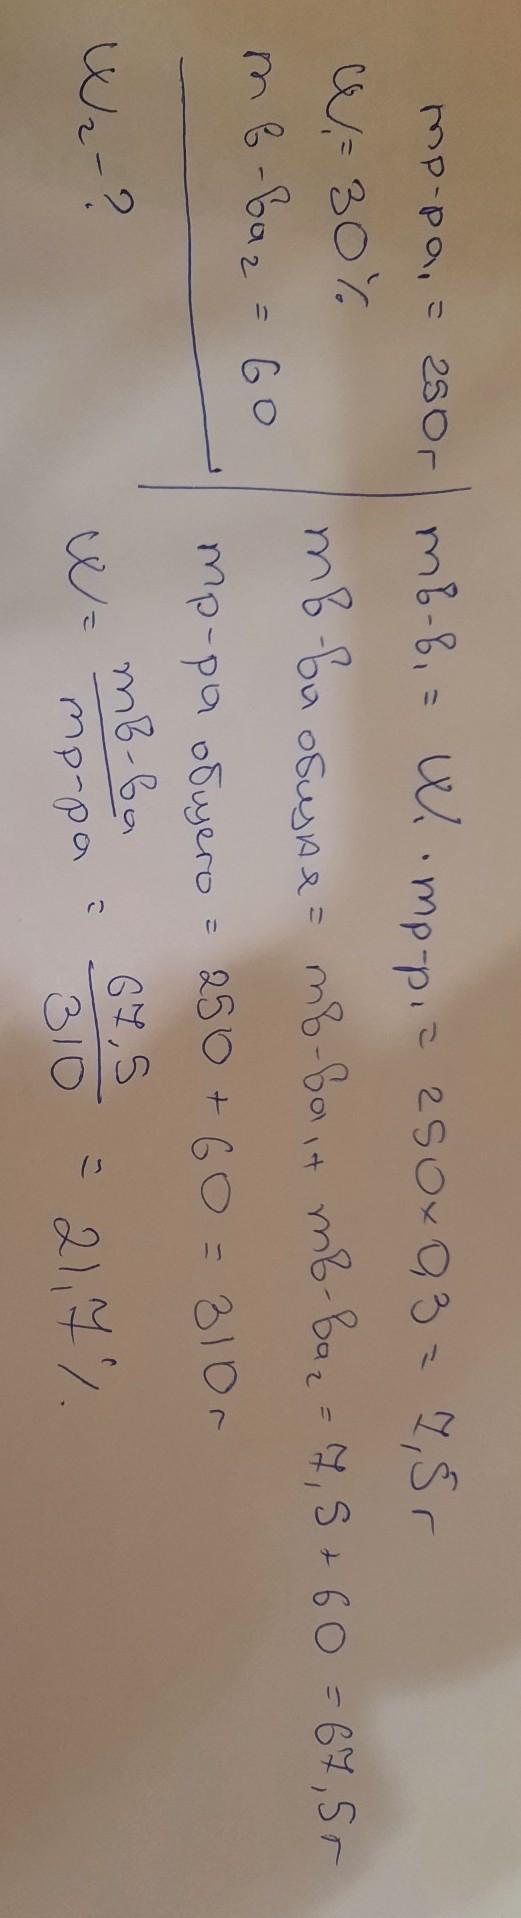 mр-ра₁ = 250г
W₁ = 30%
mв-ва₂ = 60
W₂ - ?
mв-в₁ = W₁ · mр-р₁ = 250 × 0,3 = 7,5г
mв-ва общая = mв-ва₁ + mв-ва₂ = 7,5 + 60 = 67,5г
mр-ра общего = 250 + 60 = 310г
W = mв-ва / mр-ра = 67,5 / 310 = 21,7%.